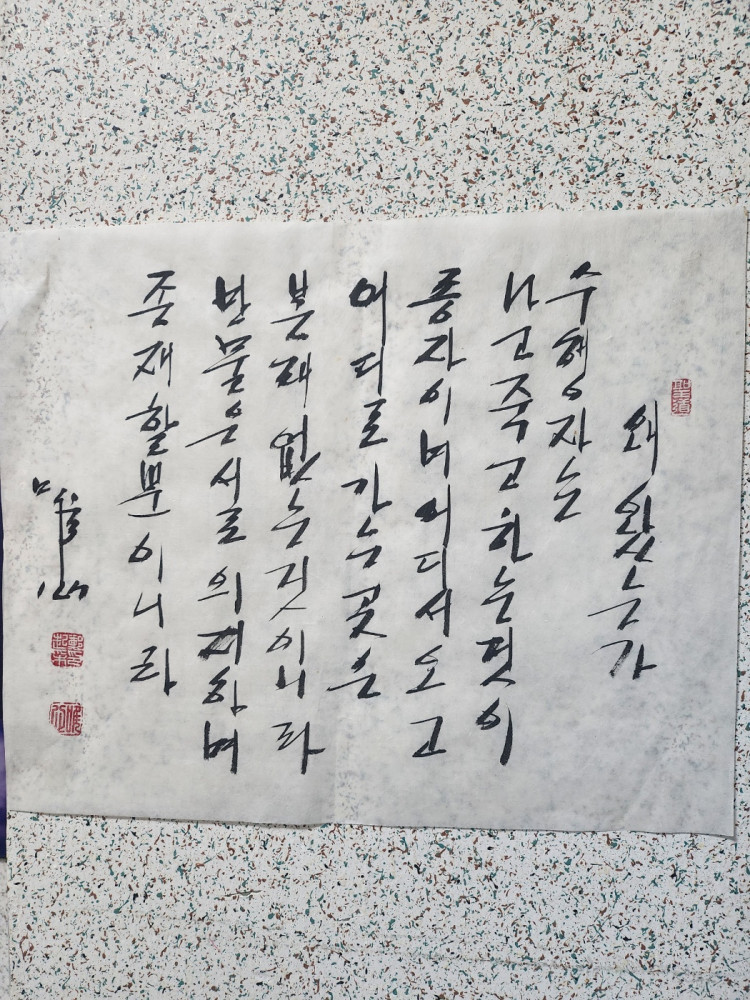 왜 왔는가
수행자는
나고죽고하는것이
종자이며어디서오고
어디로가는곳은
본래없는것이니라
만물은서로의재하며
존재할뿐이니라